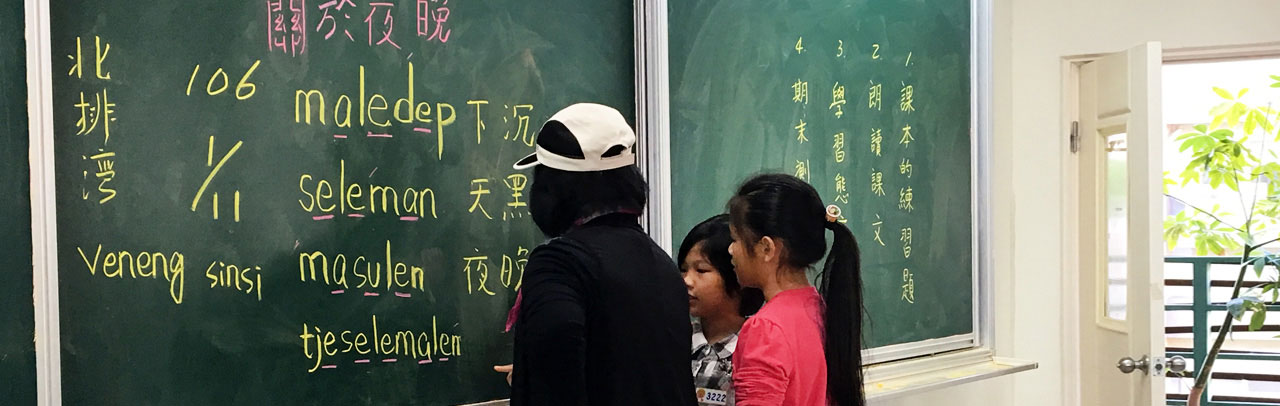 關於夜晚
北排灣
106
1/11
veneng sinsi
maledep 下沉
seleman 天黑
masulen 夜晚
tjeselemalen
1. 課本的練習題
2. 朗讀課文
3. 學習態
4. 期末測
3222